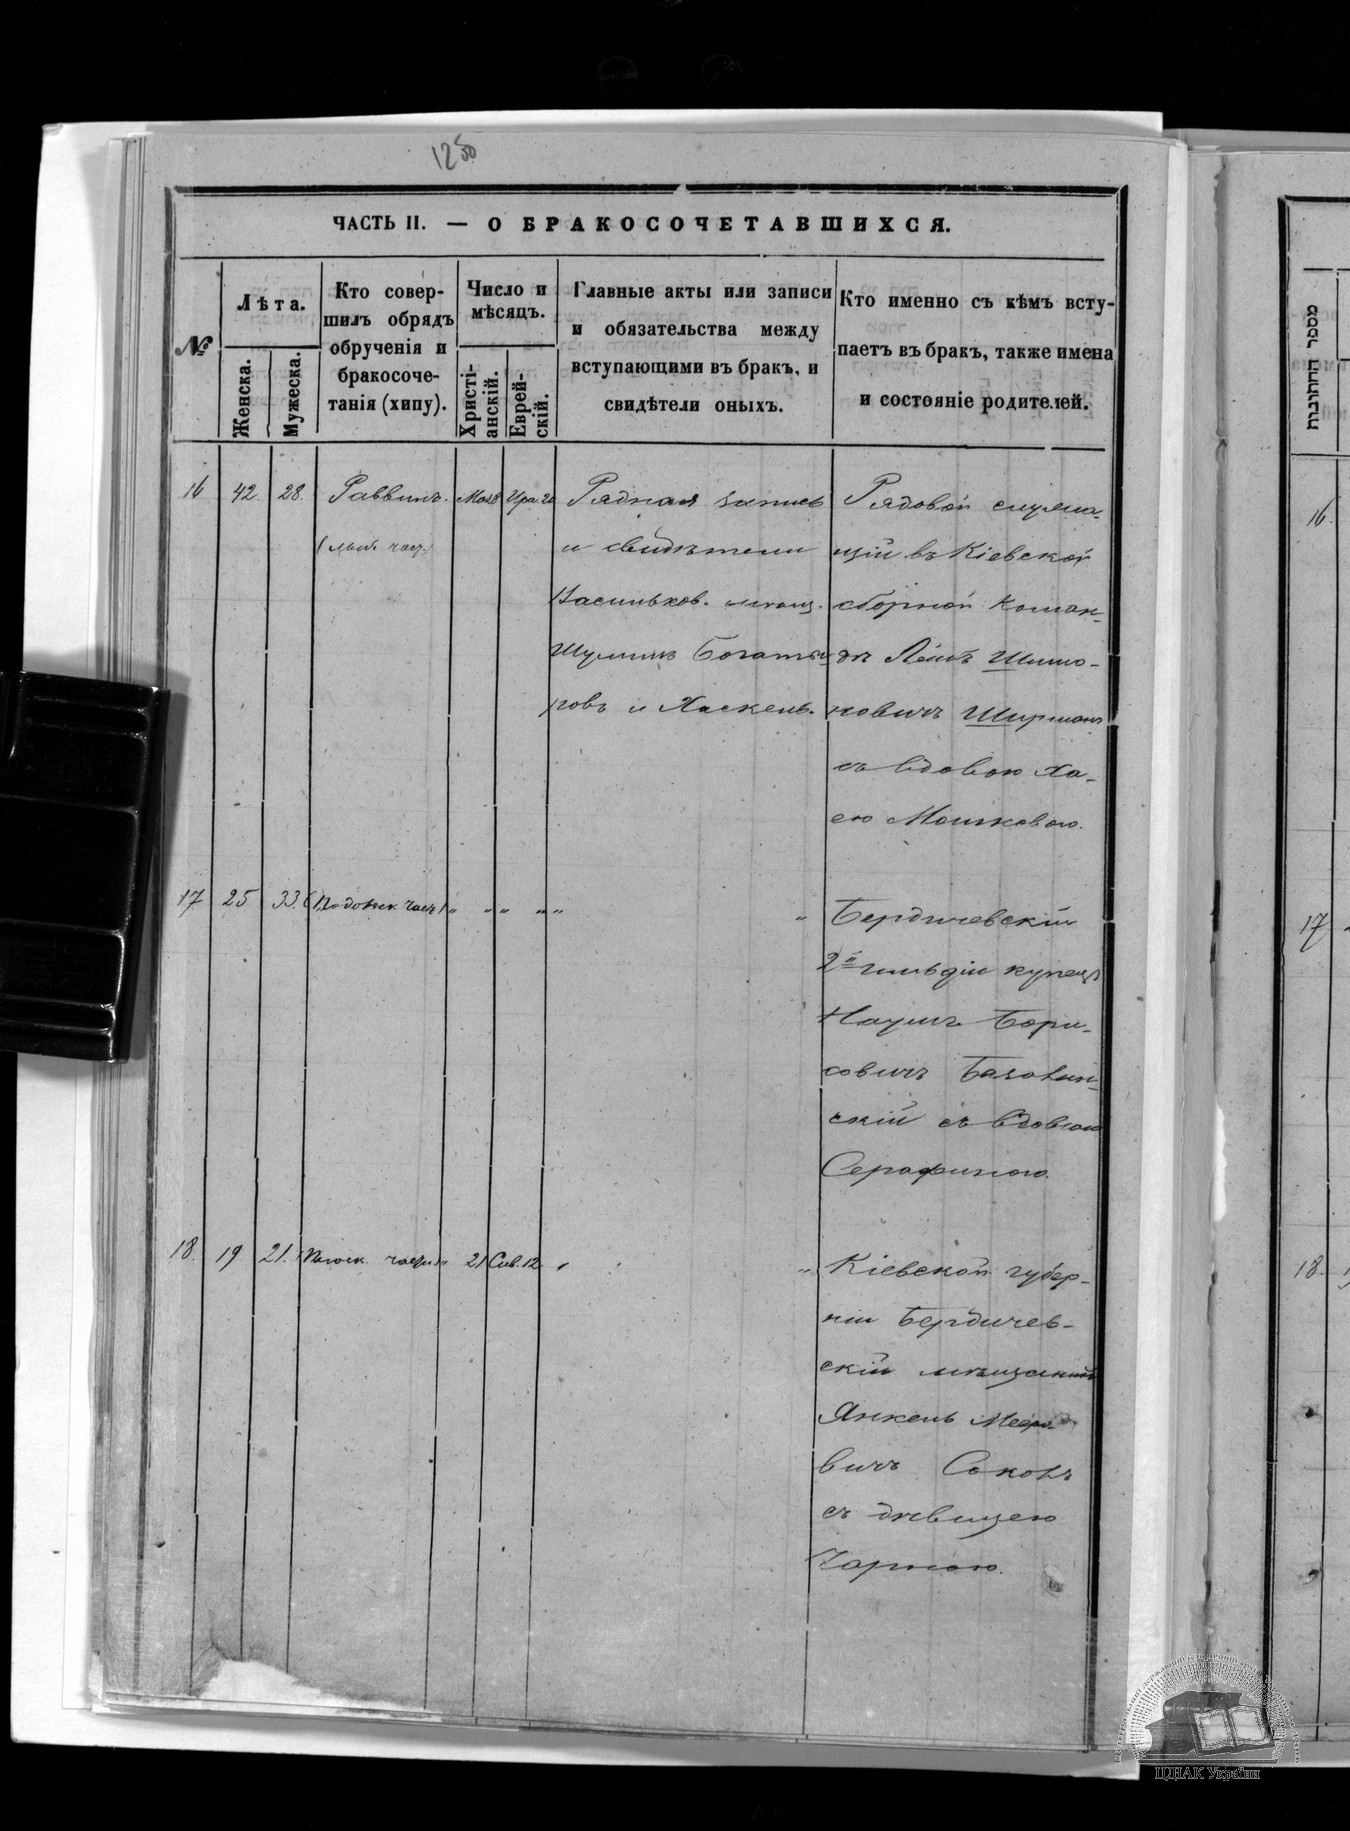 1250
ЧАСТЬ II. — О БРАКОСОЧЕТАВШИХСЯ.
№
Лѣта.
Женска.
Мужеска.
Кто совер-
шилъ обрядъ
обрученія и
бракосоче-
танія (хипу).
Число и
мѣсяцъ.
Христі-
анскій.
Еврей-
скій.
Главные акты или записи
и обязательства между
вступающими въ бракъ, и
свидѣтели оныхъ.
Кто именно съ кѣмъ всту-
паетъ въ бракъ, также имена
и состояніе родителей.
16 42. 28. Раввинъ.
Рядная запись
и свидѣтели
Васильков. мѣщ.
Шулимъ
ровъ и Хаскель.
Рядовой служа-
щій въ Кіевской
сборной коман-
дѣ Лейбъ Шимо-
новичъ Ширманъ
съ вдовою Ха-
ею Мошковою.
17 25 33. " " " " " "
Бердичевскій
2й гильдіи купецъ
Наумъ Бори-
совичъ
скій съ вдовою
Серафиною.
18. 19 21. 21 Сив. 12 " "
Кіевской губер-
ніи Бердичев-
скій мѣщанинъ
Янкель Мееро
вичъ Соколъ
съ дѣвицею
Чарною.
מספר החתונות
16.
17
18.
ЦДІАК України